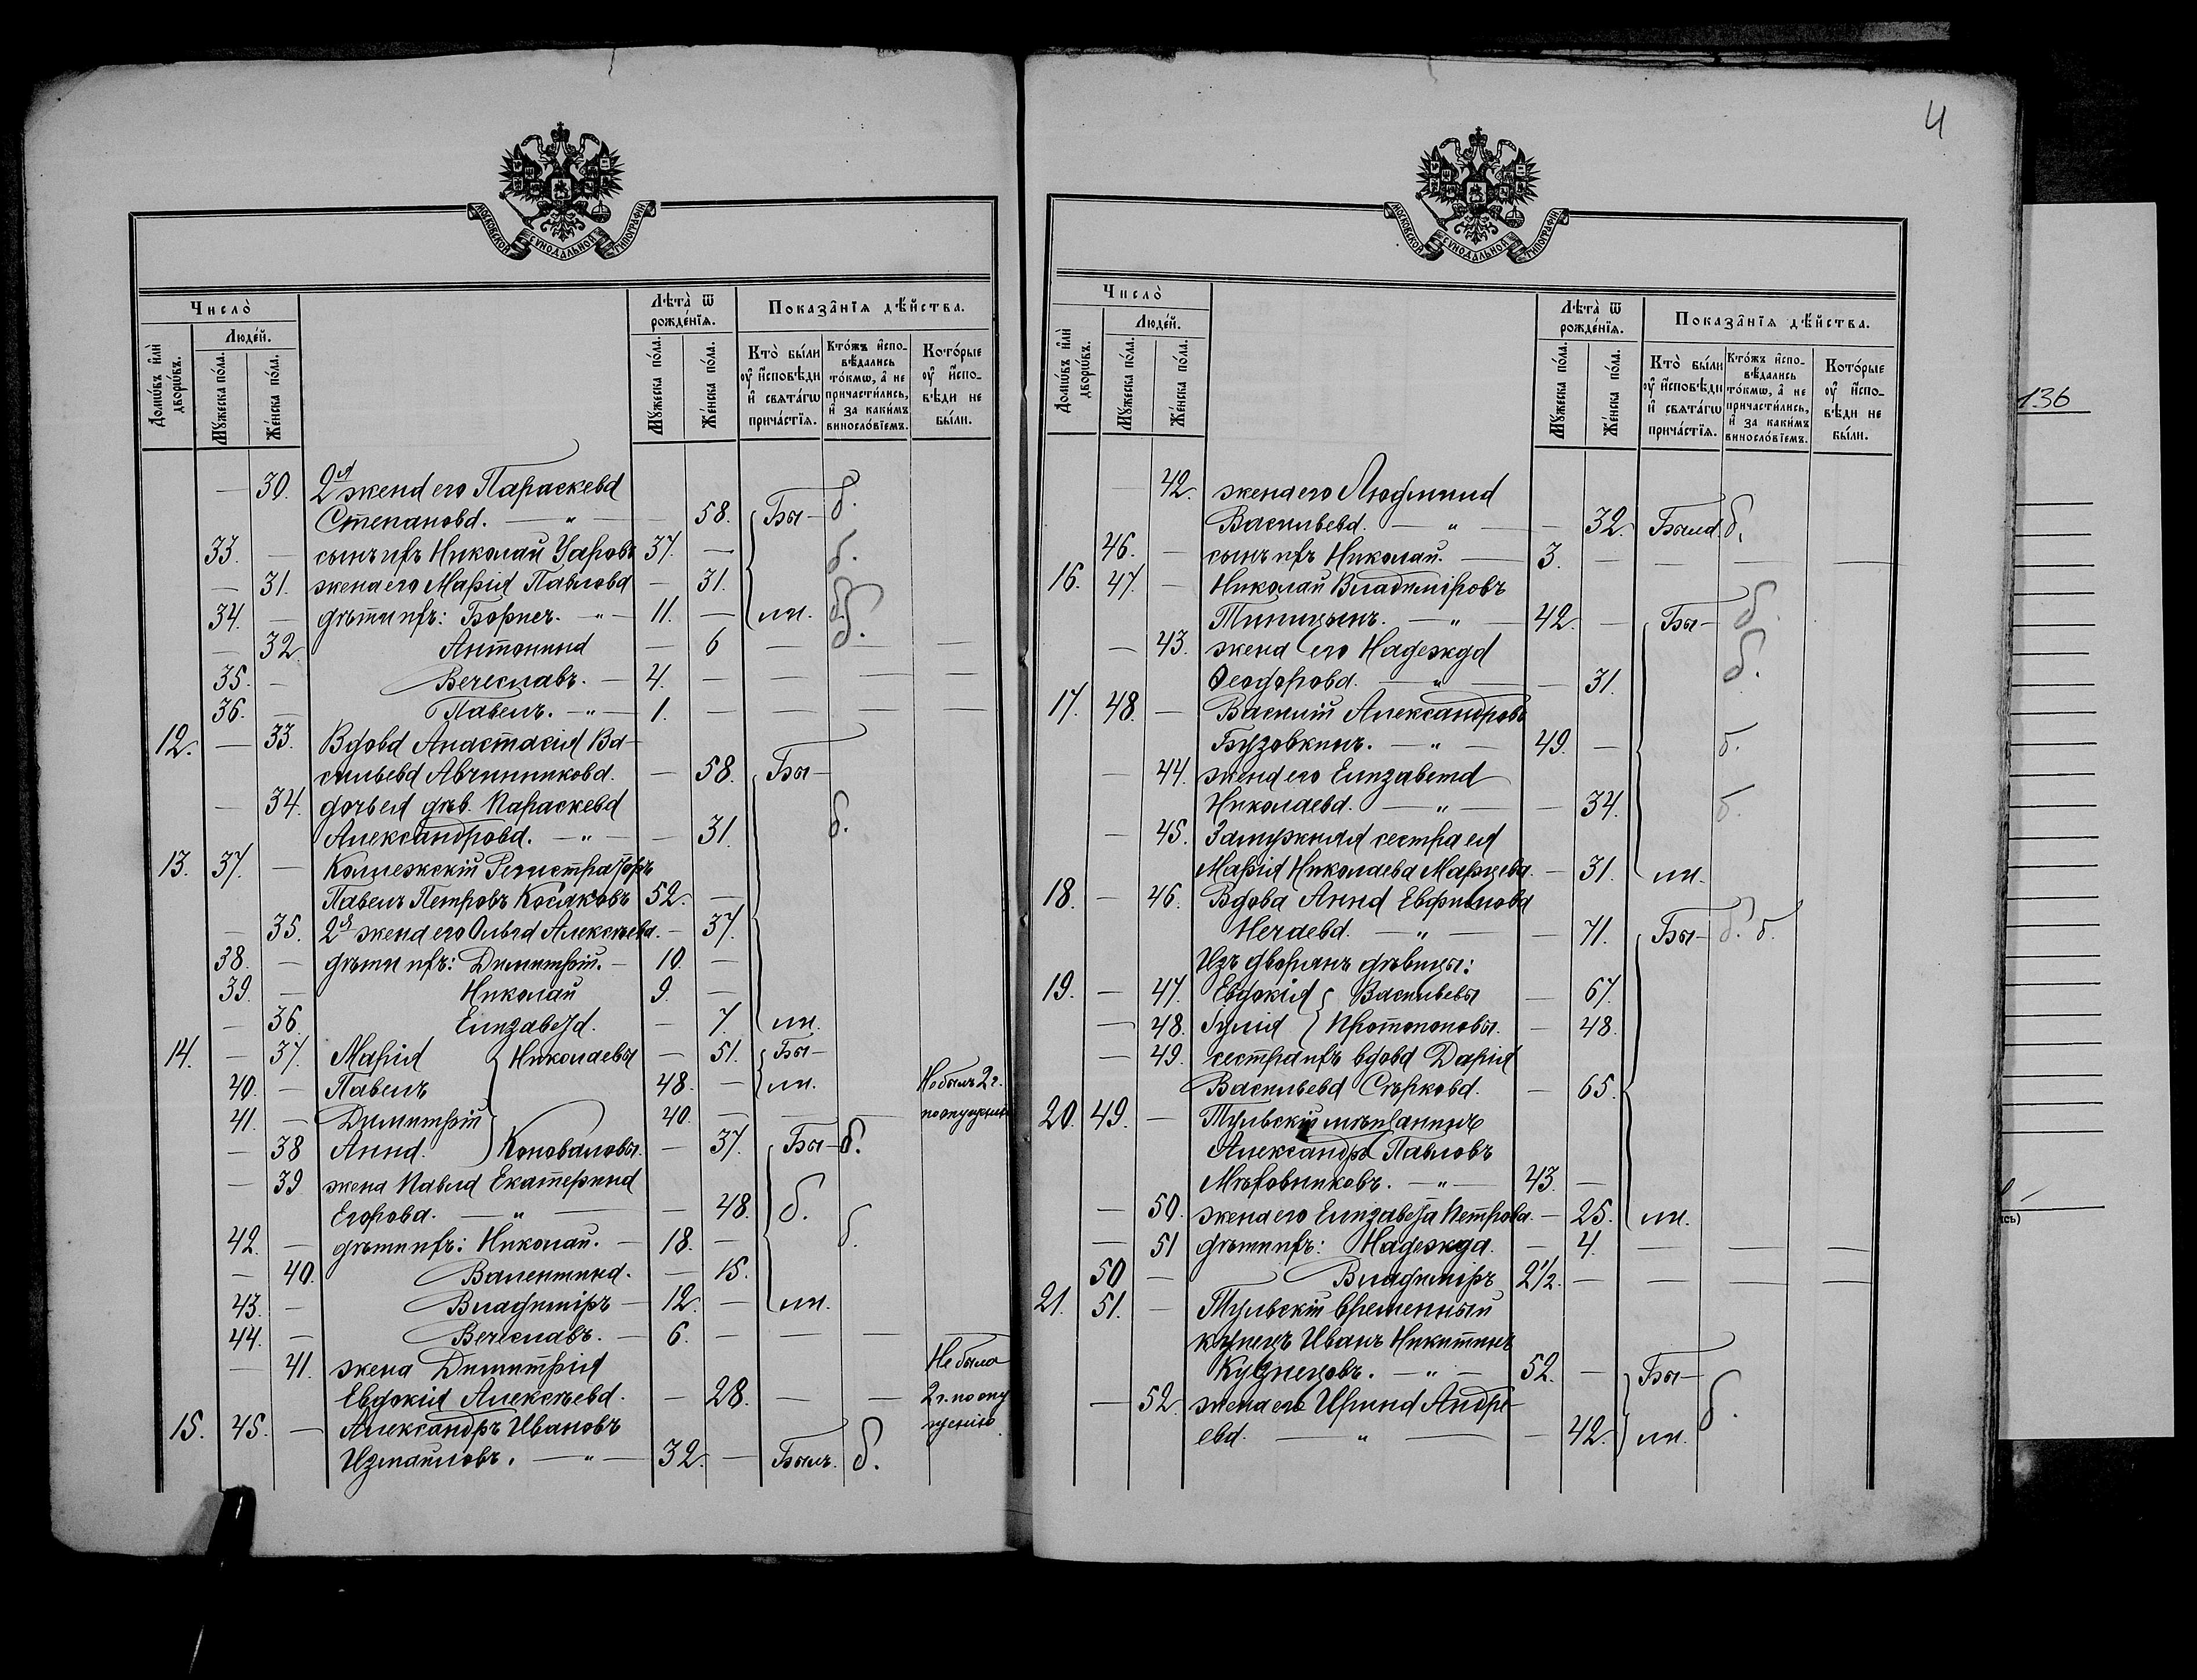 4
136
МОСКОВСКОЙ СѴНОДАЛЬНОЙ ТИПОГРАФІИ
Число̀
Людéй.
Домѡ́въ и҆лѝ дворѡ́въ.
Мꙋ́жеска по́ла.
Же́нска по́ла.
Лѣта̀ ѿ рожде́нїѧ.
Мꙋ́жеска по́ла.
Же́нска по́ла.
Показа̂нїѧ дѣ́йства.
Кто̀ бы́ли ᲂу҆ и҆́сповѣди и҆ свѧта́гѡ прича́стїѧ.
Кто́жъ и҆спо-вѣ́дались то́кмѡ, а҆ не причасти́лись, и҆ за каки́мъ винослóвїемъ.
Кото́рые ᲂу҆ и҆́спо-вѣди не бы́ли.
— 30. 2я жена его Параскева
Степанова. — " — — 58. Бы- б.
33. — сынъ ихъ Николай Уаровъ 37. — б.
— 31. жена его Марія Павлова — 31. б.
34. — дѣти ихъ: Борисъ. — " — 11. — ли. б.
— 32 Антонина — 6 — — —
35. — Вячеславъ. — 4. — — — —
36. — Павелъ. — " — 1. — — — —
12. — 33. Вдова Анастасія Ва-
сильева Авчинникова. — 58. Бы-
— 34. дочь ея дѣв. Параскева
Александрова. — " — — 31. б.
13. 37. — Коллежскій Регистраторъ
Павелъ Петровъ Косяковъ 52. —
— 35. 2я жена его Ольга Алексѣева. — 37.
38. — дѣти ихъ: Димитрій. — 10. —
39. — Николай 9. —
— 36. Елизавета. — 7. ли.
14. — 37. Марія } Николаевы — 51. Бы-
40. — Павелъ 48. — ли. Не былъ 2 г.
41. — Димитрій 40. — — — по опущенію
— 38 Анна. } Коноваловы. — 37. Бы- б.
— 39 жена Павла Екатерина
Егорова. — " — — 48. б.
42. — дѣти ихъ: Николай. — 18. — б.
— 40. Валентина. — 15.
43. — Владиміръ — 12. — ли.
44. — Вячеславъ. — 6. — — —
— 41. жена Димитрія Не была
Евдокія Алексѣева. — 28. — — 2 г. по опу
15. 45. — Александръ Ивановъ щенію.
Измаиловъ. — " — 32. — Былъ. б.
МОСКОВСКОЙ СѴНОДАЛЬНОЙ ТИПОГРАФІИ
Число̀
Людéй.
Домѡ́въ и҆лѝ дворѡ́въ.
Мꙋ́жеска по́ла.
Же́нска по́ла.
Лѣта̀ ѿ рожде́нїѧ.
Мꙋ́жеска по́ла.
Же́нска по́ла.
Показа̂нїѧ дѣ́йства.
Кто̀ бы́ли ᲂу҆ и҆́сповѣди и҆ свѧта́гѡ прича́стїѧ.
Кто́жъ и҆спо-вѣ́дались то́кмѡ, а҆ не причасти́лись, и҆ за каки́мъ винослóвїемъ.
Кото́рые ᲂу҆ и҆́спо-вѣди не бы́ли.
— 42. жена его Людмила
Васильева. — " — — 32. Была. б.
46. — сынъ ихъ Николай. — 3. — — — —
16. 47. — Николай Владиміровъ
Типицынъ. — " — 42. — Бы- б.
— 43. жена его Надежда
Ѳеодорова. — " — — 31. б.
17. 48. — Василій Александровъ
Бузовкинъ. — " — 49. — б.
— 44. жена его Елизавета
Николаева. — " — — 34. б.
— 45. Замужняя сестра ея
Марія Николаева Марцева. — 31. ли.
18. — 46. Вдова Анна Евфимова
Нечаева. — " — — 71. Бы- б. б.
Изъ дворянъ дѣвицы:
19. — 47. Евдокія } Васильевы — 67.
— 48. Іулія } Протопоповы. — 48.
— 49. сестра ихъ вдова Дарія
Васильева Сѣркова. — 65.
20. 49. — Тульскій мѣщанинъ
Александръ Павловъ
Мѣховниковъ. — " — 43. —
— 50. жена его Елизавета Петрова. — 25. ли.
— 51 дѣти ихъ: Надежда. — 4. — — —
50 — Владиміръ 2½. — — — —
21. 51. — Тульскій временный
купецъ Иванъ Никитинъ
Кузнецовъ. — " — 52. — Бы-
— 52. жена его Ирина Андре-
ева. — " — — 42. ли. б.